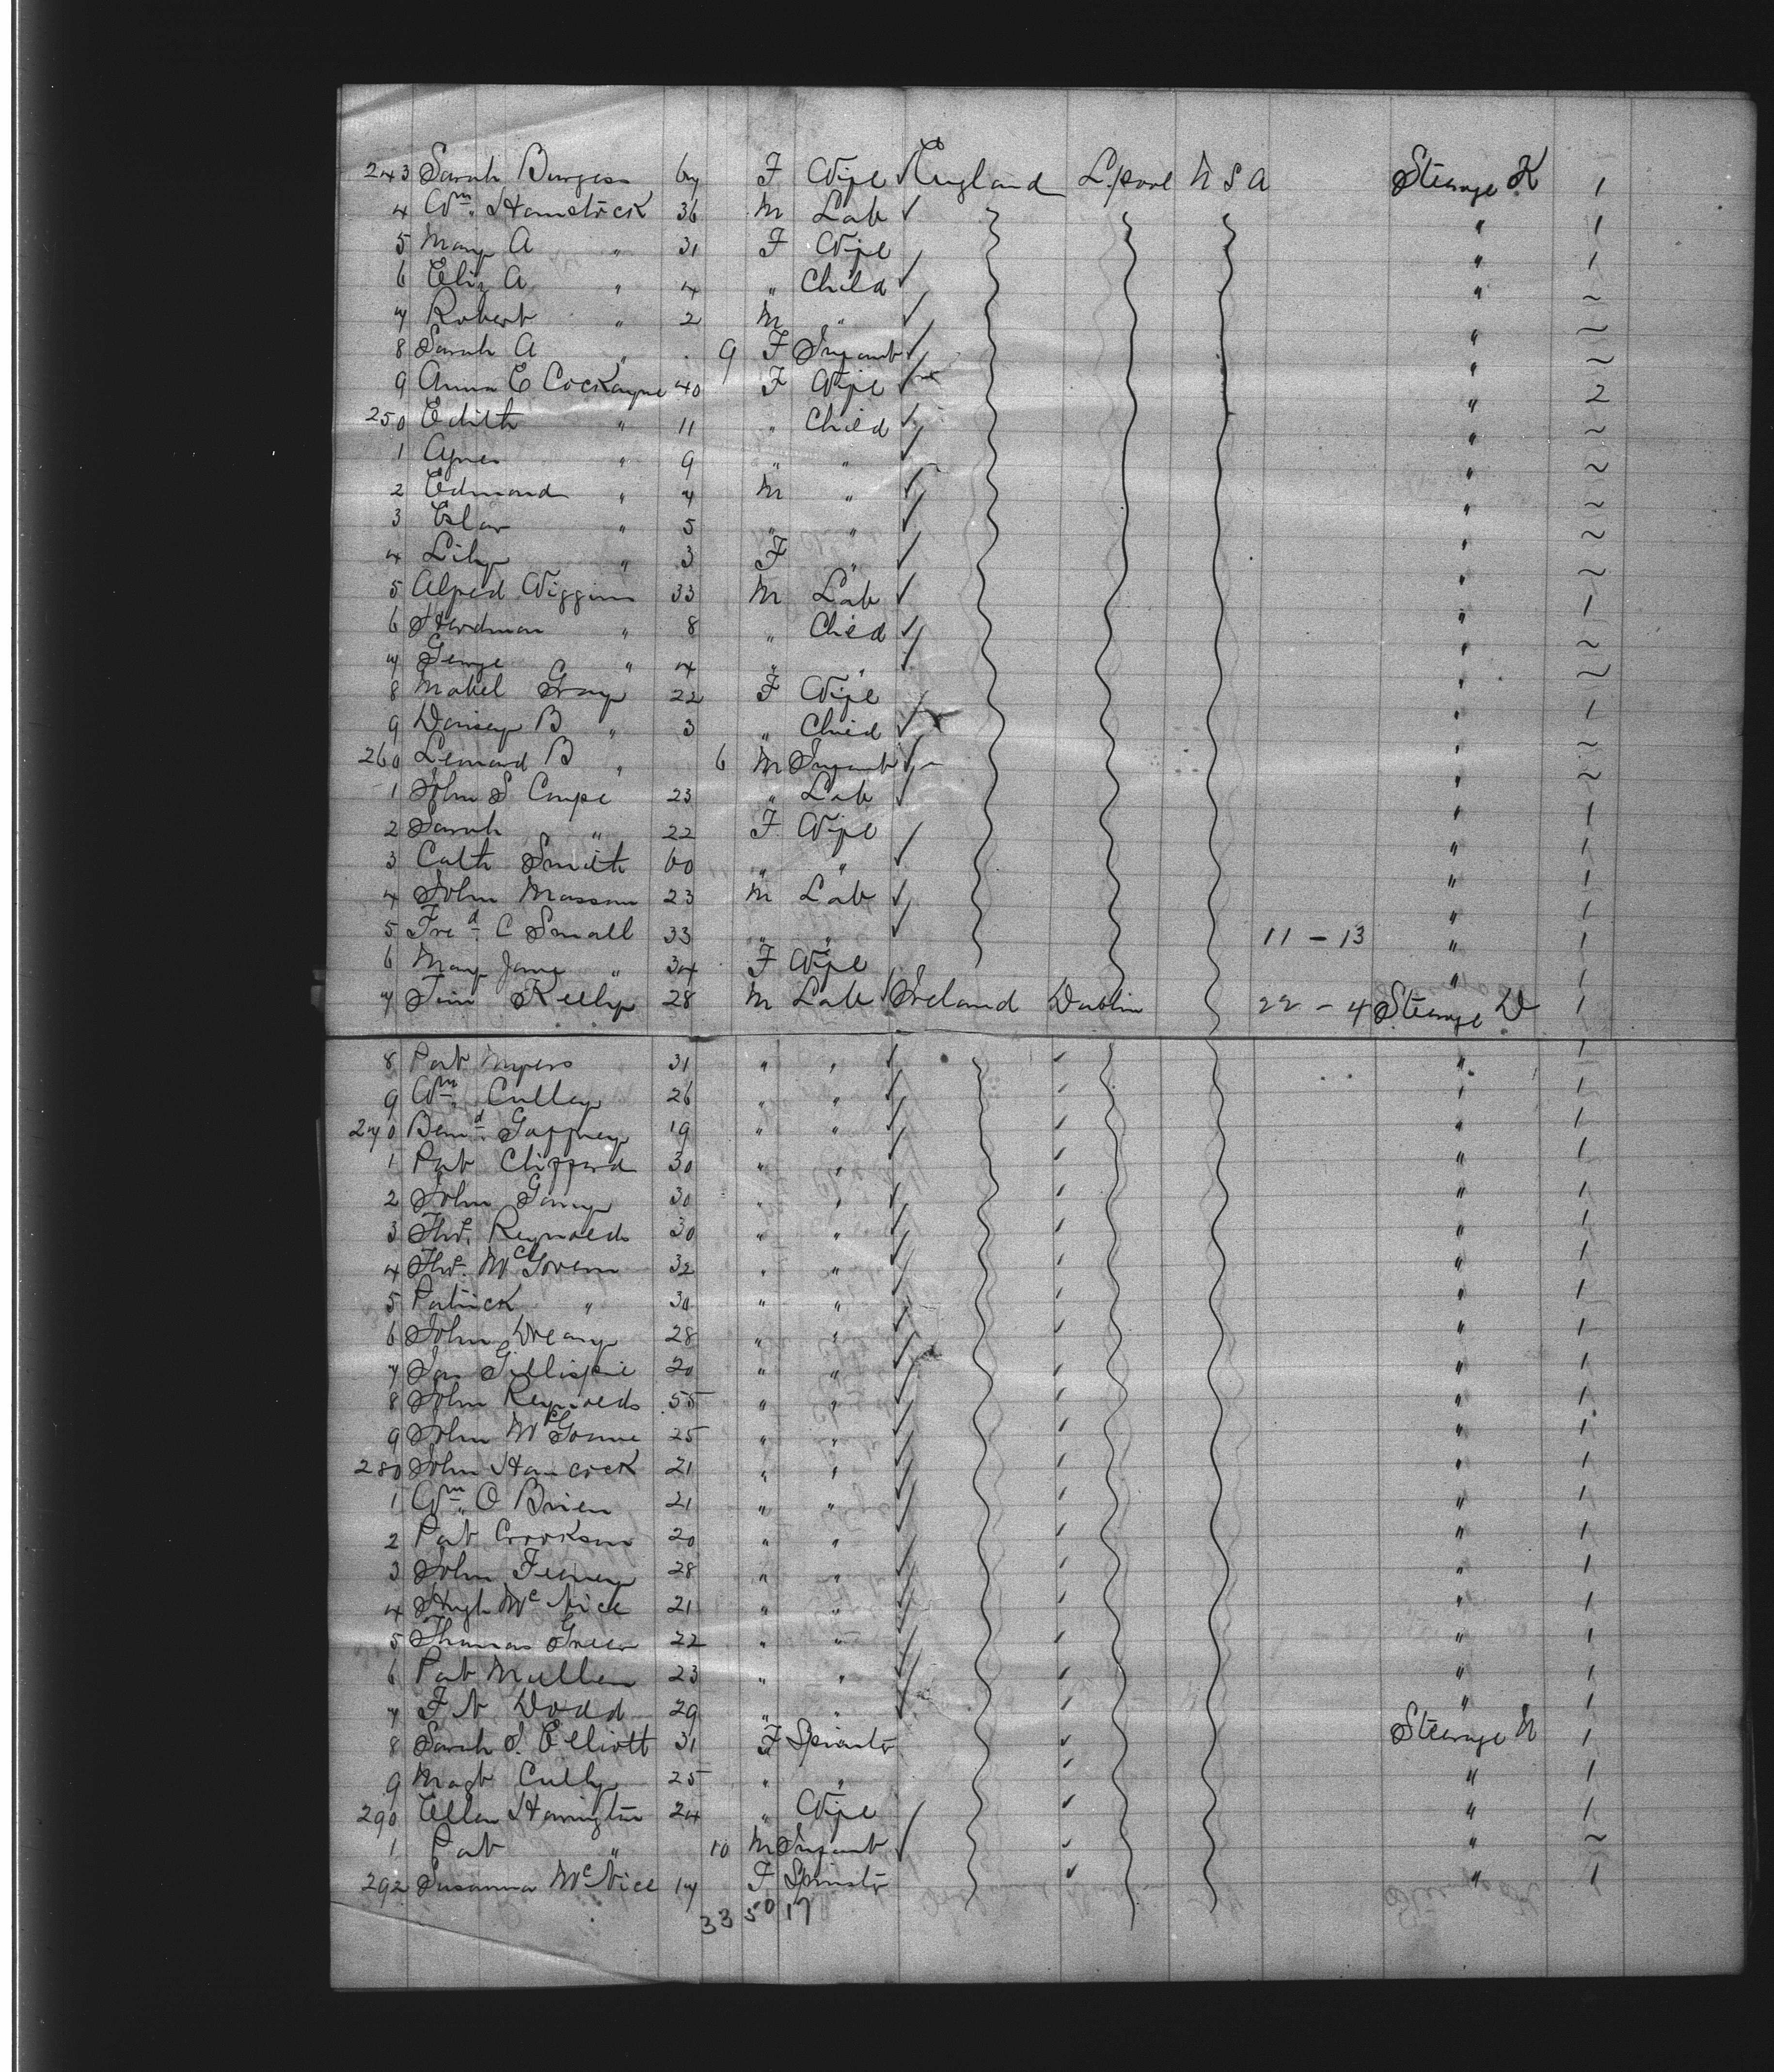 243 Sarah Burgess 67 F Wife England L.pool U S A Steerage K 1
4 Wm. Hamstock 36 M Lab " 1
5 Mary A " 31 F Wife " 1
6 Eliz A " 4 " Child " ~
7 Robert " 2 M " " ~
8 Sarah A " 9 F Infant " ~
9 Anna E Cockayne 40 F Wife " 2
250 Edith " 11 " Child " ~
1 Agnes " 9 " " " ~
2 Edmond " 7 M " " ~
3 " 5 " " " ~
4 Lily " 3 F " " ~
5 Alfred Wiggins 33 M Lab " 1
6 Herdman " 8 " Child " ~
7 George " 4 " " " ~
8 Mabel Gray 22 F Wife " 1
9 B " 3 " Child " ~
260 Leonard B " 6 M Infant " ~
1 John S Coupe 23 " Lab " 1
2 Sarah " 22 F Wife " 1
3 Cath Smith 60 " " " 1
4 John Masson 23 M Lab " 1
5 Fred. C Small 33 " " 11 - 13 " 1
6 Mary Jane " 34 F Wife " 1
7 Jim Kelly 28 M Lab Ireland Dublin 22 - 4 Steerage D 1
8 Pat Myers 31 " " " 1
9 Wm. Culley 26 " " " 1
270 Bernd. Gaffney 19 " " " 1
1 Pat Clifford 30 " " " 1
2 John 30 " " " 1
3 Thos. Reynolds 30 " " " 1
4 Thos. McGovern 32 " " " 1
5 Patrick " 30 " " " 1
6 John 28 " " " 1
7 Jas Gillispie 20 " " " 1
8 John Reynolds 55 " " " 1
9 John 25 " " " 1
280 John Hancock 21 " " " 1
1 Wm. O Brien 21 " " " 1
2 Pat 20 " " " 1
3 John Feeney 28 " " " 1
4 Hugh McNice 21 " " " 1
5 Thomas 22 " " " 1
6 Pat Mullen 23 " " " 1
7 F N Dodd 29 " " " 1
8 Sarah J. Elliott 31 F Spinster Steerage U 1
9 Magt Cully 25 " " " 1
290 Ellen Harrington 24 " Wife " 1
1 Pat " 10 M Infant " ~
292 Susanna McNice 17 F Spinster " 1
33 50 17